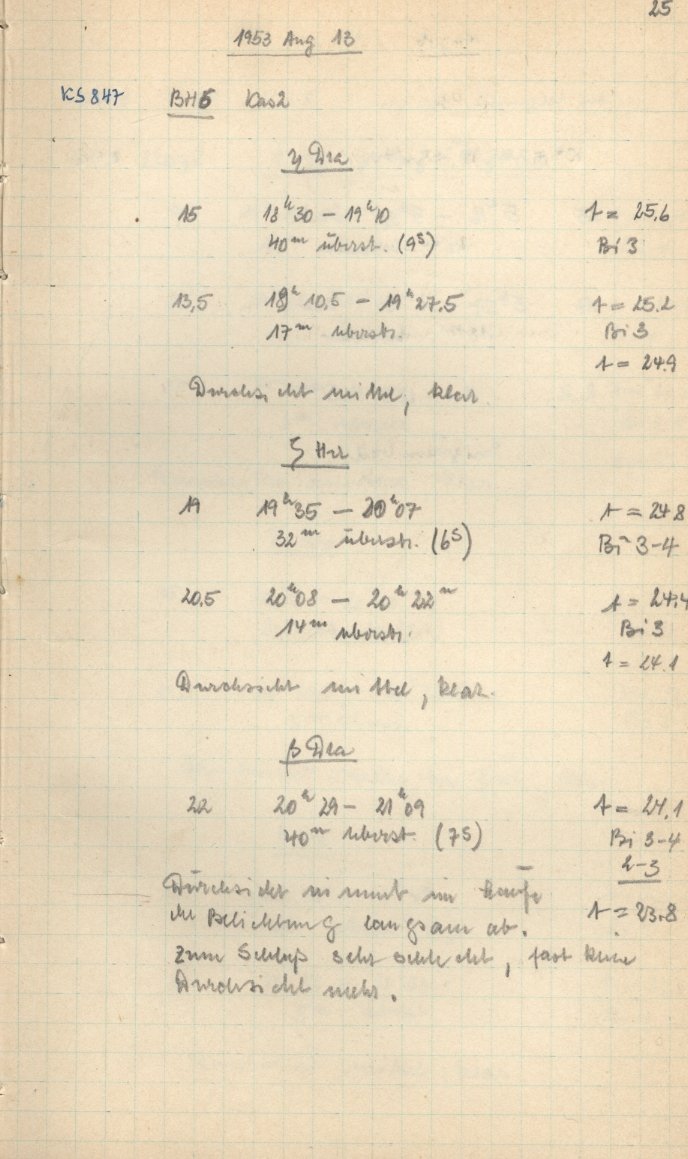 25
1953 Aug 13
KS 847 BH5 Kas2
η Dra
15 18ʰ30 – 19ʰ10 t = 25,6
40ᵐ überstr. (9ˢ) Bi 3
13,5 19ʰ10,5 – 19ʰ27,5 t = 25.2
17ᵐ überstr. Bi 3
t = 24.9
Durchsicht mittel, klar.
ζ Her
19 19ʰ35 – 20ʰ07 t = 24.8
32ᵐ überstr. (6ˢ) Bi 3-4
20,5 20ʰ08 – 20ʰ22ᵐ t = 24.4
14ᵐ überstr. Bi 3
t = 24.1
Durchsicht mittel, klar.
β Dra
22 20ʰ29 – 21ʰ09 t = 24,1
40ᵐ überst. (7S) Bi 3-4
2-3
Durchsicht nimmt im Laufe
der Belichtung langsam ab. t = 23.8
Zum Schluß sehr schlecht, fast keine
Durchsicht mehr.